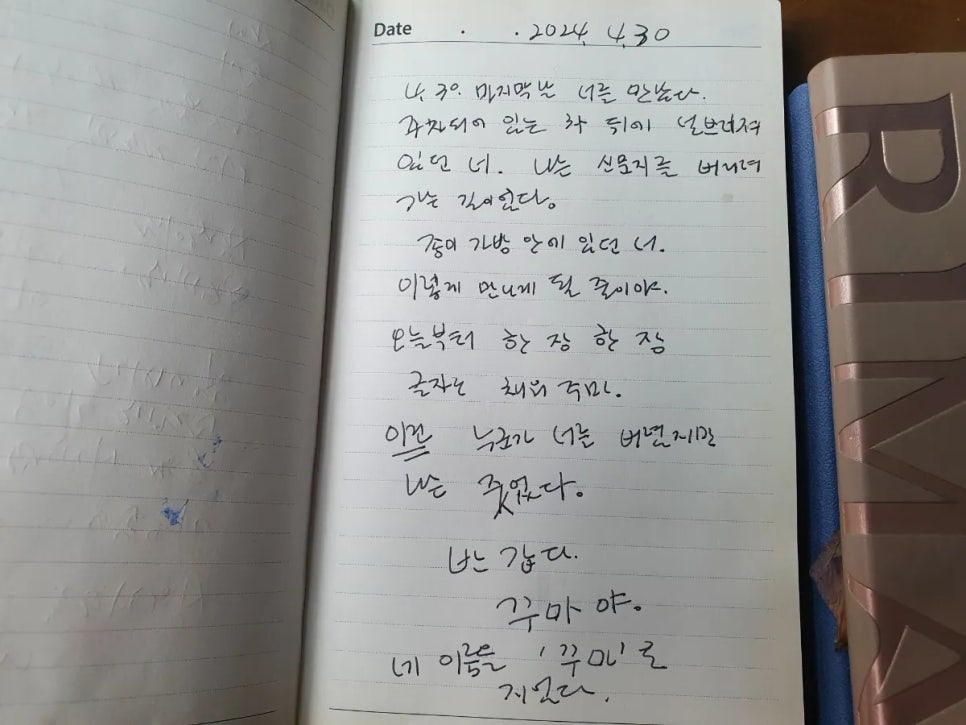 Date . . 2024. 4. 30
4, 30. 마지막날 너를 만났다.
주차되어 있는 차 뒤에 널브러져
있던 너. 나는 신문지를 버리러
가는 길이었다.
종이 가방 안에 있던 너.
이렇게 만나게 될 줄이야.
오늘부터 한 장 한 장
글자로 채워 주마.
이젠 누군가 너를 버렸지만
나는 주웠다.
너는 갔다.
꾸마야.
네 이름을 '꾸마'로
지었다.
PRIMA